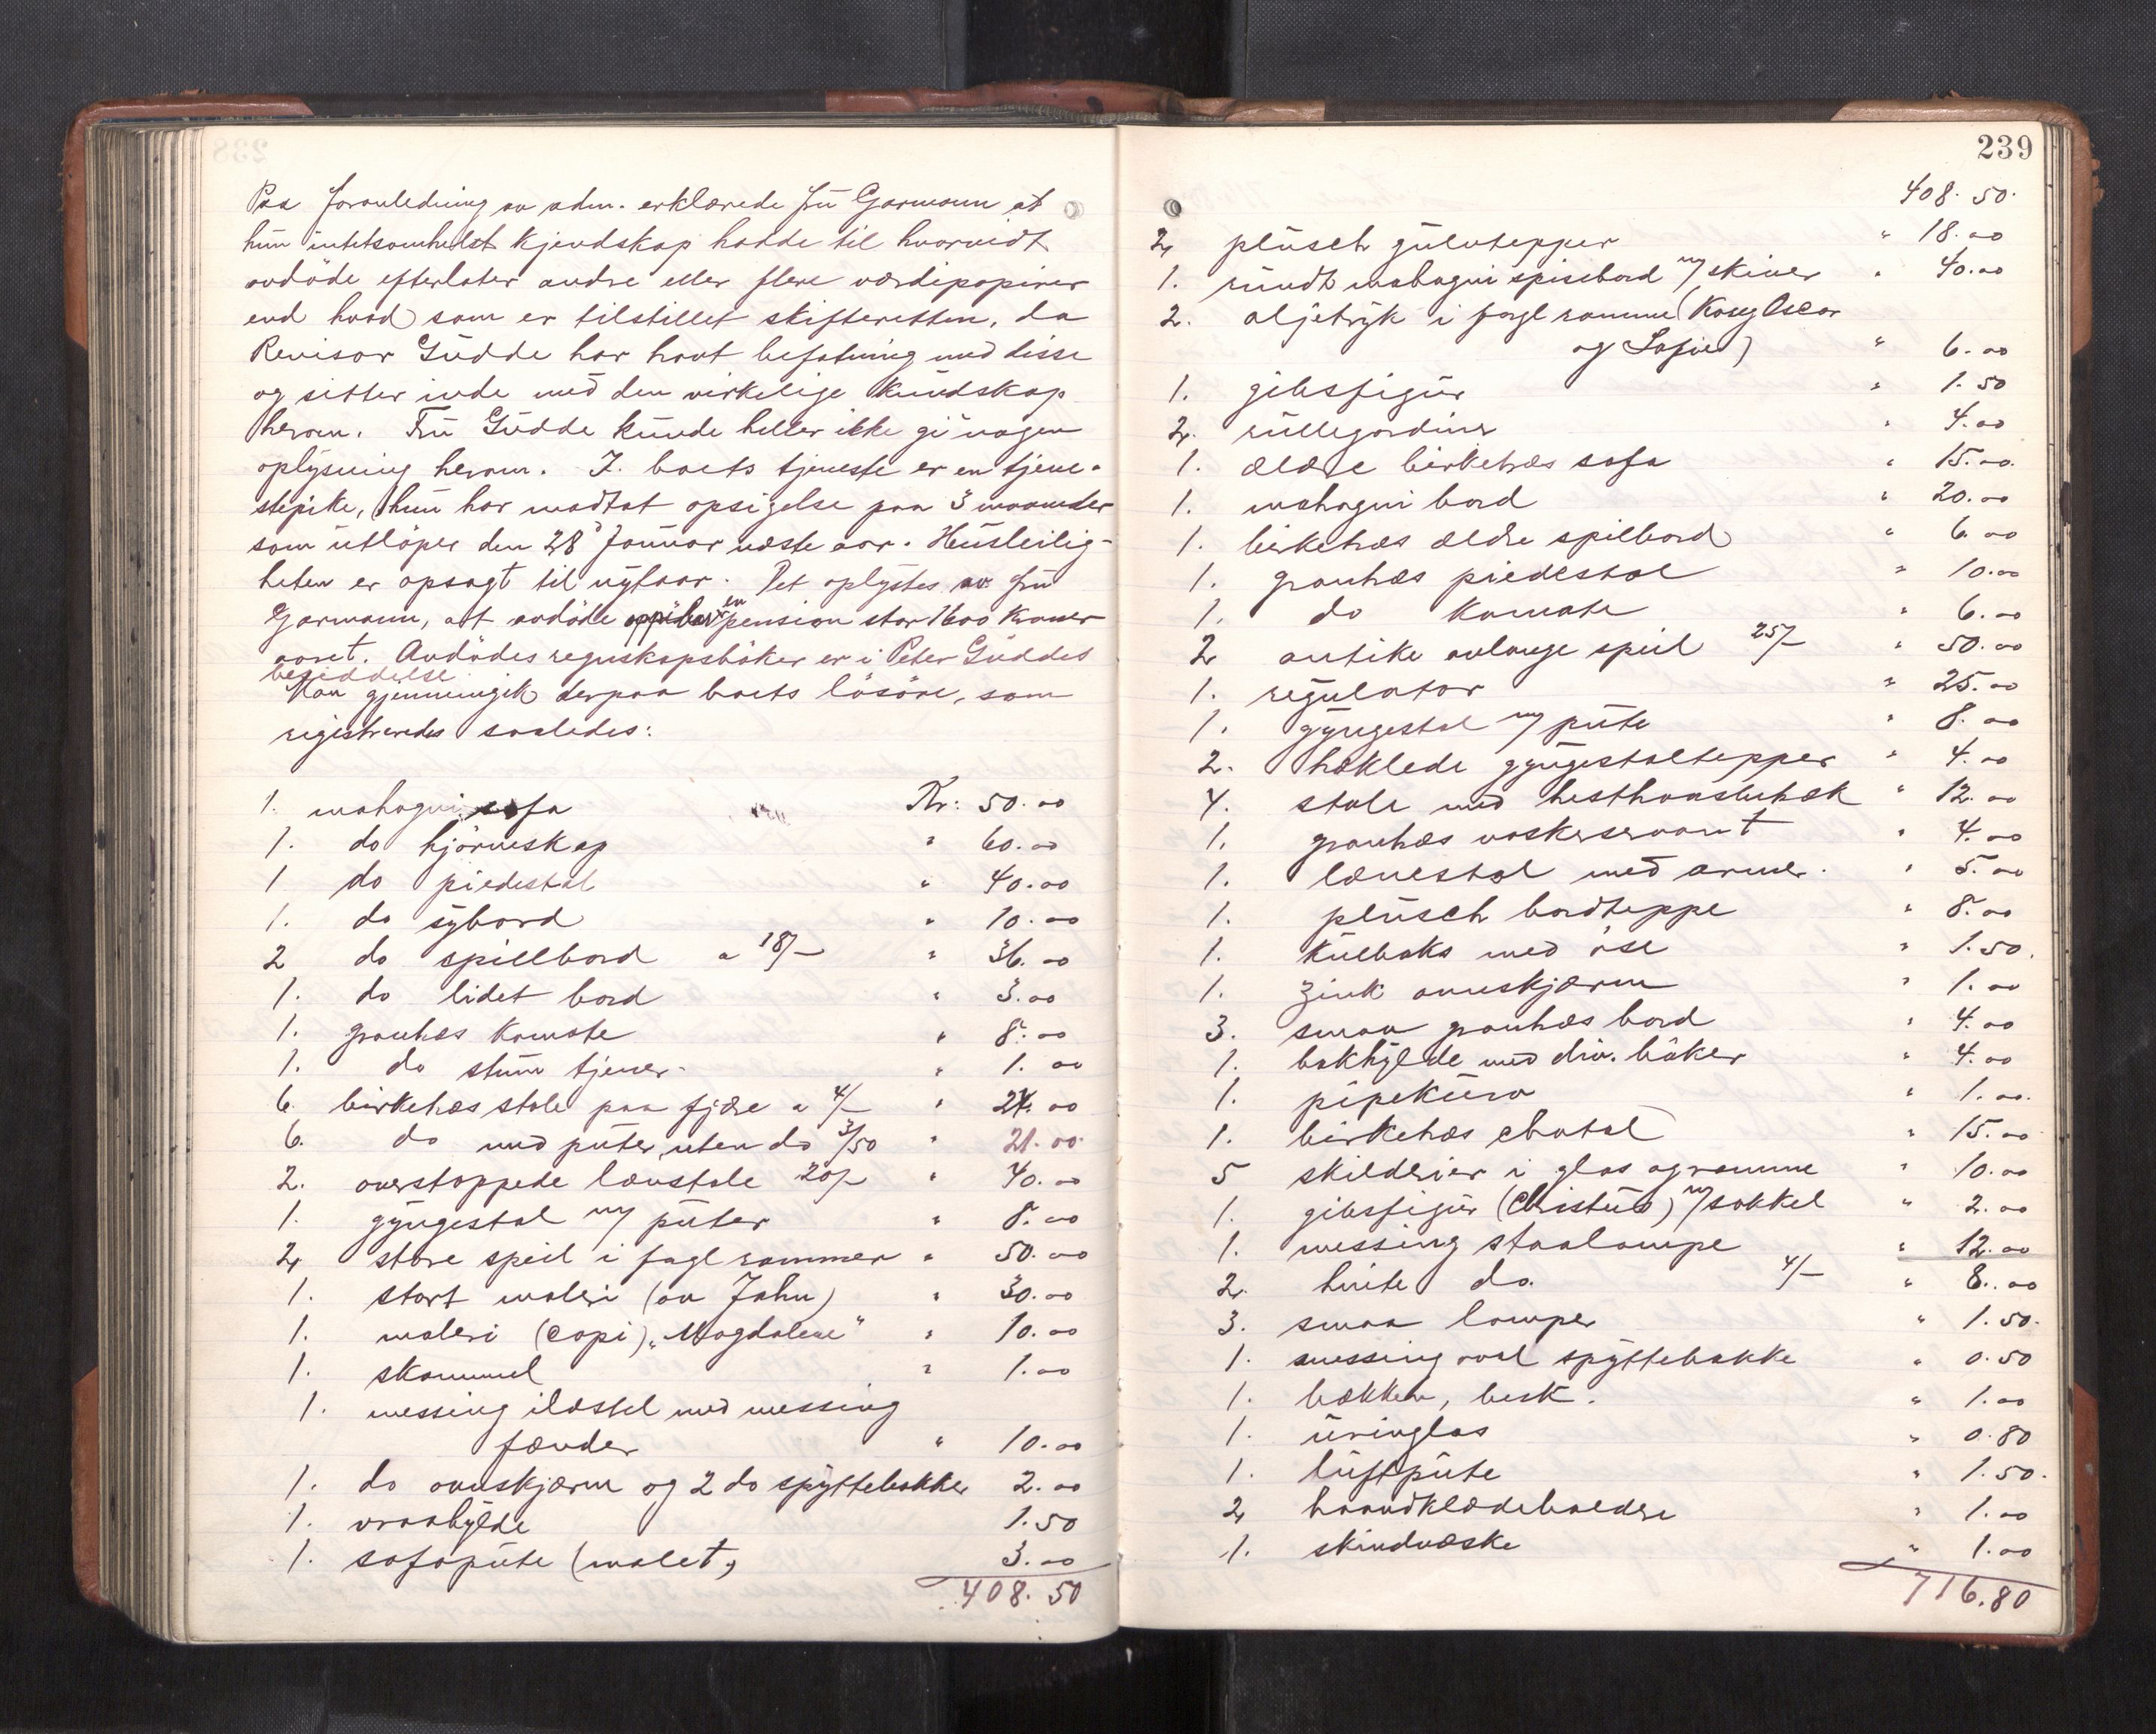 Paa foranledning av adm. erklærede frü Garmann at
hün intetsomhelst kjendskap hadde til hvorvidt
avdöde efterlater andre eller flere værdipapirer
end hvad som er tilstillet skifteretten, da
Revisor Güdde har havt befatning med disse
og sitter inde med den virkelige kündskap
herom. Frü Güdde künde heller ikke gi nogen
oplÿsning herom. I boets tjeneste er en tjene-
stepike, hün har modtat opsigelse paa 3 maaneder
som ütlöper den 28 Januar næste aar. Hüsleilig-
heten er opsagt til nÿtaar. Det oplÿstes av frü
Garmann, at avdöde en pension stor 1600 kroner
aaret. Avdödes regnskapsböker er i Peter Güddes
besiddelse
Man gjennemgik derpaa boets lösöre, som
registreredes saaledes:
1. mahagni sofa Kr: 50.00
1. do hjörneskap " 60.00
1 do piedestal " 40.00
1. do sÿbord " 10.00
2 do spillbord a 18/- " 36.00
1. do lidet bord " 3.00
1. grantræs komode " 8.00
1. do stüm tjener " 1.00
6. birketræs stole paa fjære a 4/- " 24.00
6. do med püter uten do 3/50 " 21.00
2. overstoppede lænstole 20/- " 40.00
1. gÿngestol m/ püter " 8.00
2 store speil i forgl rammer " 50.00
1. stort maleri (av Jahn) " 30.00
1. maleri (copi) "Magdalene" " 10.00
1. skammel " 1.00
1. messing ildsstel med messing
fænder " 10.00
1. do ovnskjærm og 2 do spÿttebakker 2.00
1. vraahÿlde 1.50
1. sofapüte (malet) 3.00
408.50
239
408.50
2 plüsch gülvtepper " 18.00
1. ründt mahagni spisebord m/ skiver " 40.00
2. oljetrÿk i forgl ramme (Kong Oscar
og Sofie) " 6.00
1. gibsfigür " 1.50
2. rüllegardiner " 4.00
1. ældre birketræs sofa " 15.00
1. mahagni bord " 20.00
1. birketræs ældre spilbord " 6.00
1. grantræs piedestal " 10.00
1. do komode " 6.00
2 antike avlange speil 25/- " 50.00
1. regülator " 25.00
1. gÿngestol m/ püte " 8.00
2. hæklede gÿngestoltepper " 4.00
4. stole med hesthaarstræk " 12.00
1. grantræs vaskeservant " 4.00
1. lænestol med armer " 5.00
1. plüsch bordteppe " 8.00
1. külboks med öse " 1.50
1. zink ovnskjærm " 1.00
3. smaa grantræs bord " 4.00
1. bokhÿlde med div. böker " 4.00
1. pipekürv " 1.00
1. birketræs chatol " 15.00
5 skilderier i glas og ramme " 10.00
1. gibsfigür (Christüs) m/ sokkel " 2.00
1. messing staalampe " 12.00
2. hvite do. 4/- " 8.00
3. smaa lamper " 1.50
1. messing oval spÿttebakke " 0.50
1. bækken, besk. " 1.00
1. üringlas " 0.80
1. lüftpüte " 1.50
2 haandklædeholdere " 1.00
1. skindvæske " 1.00
716.80